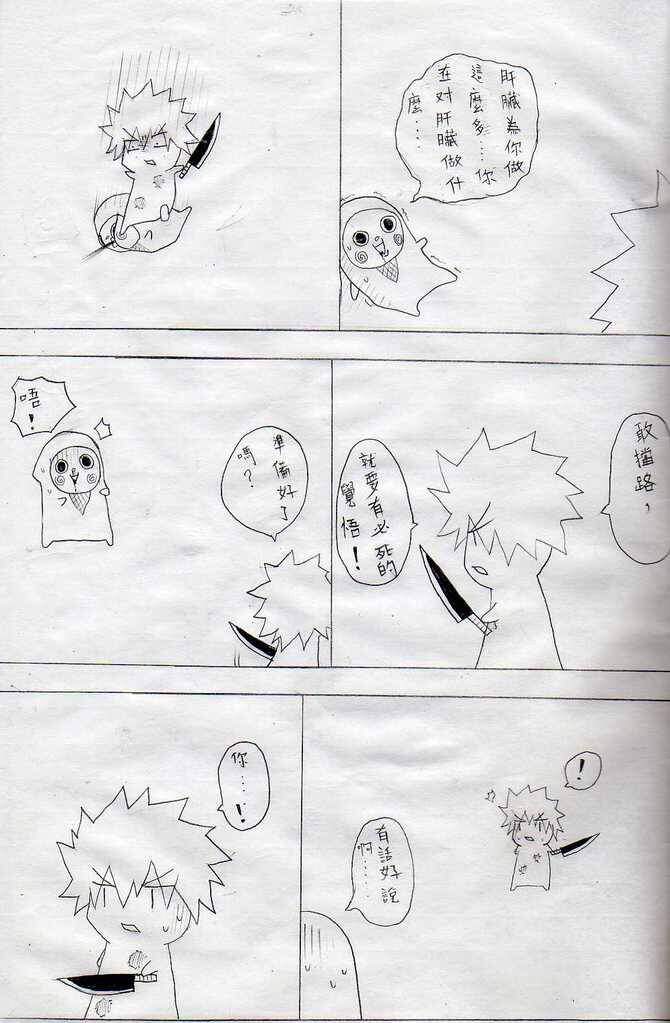 肝臟為你做
這麼多…你
在对肝臟做什
麼……
敢擋路，
就要有必死的
覺悟！
準備好了
嗎？
唔！
！
有話好說
啊……
你……！